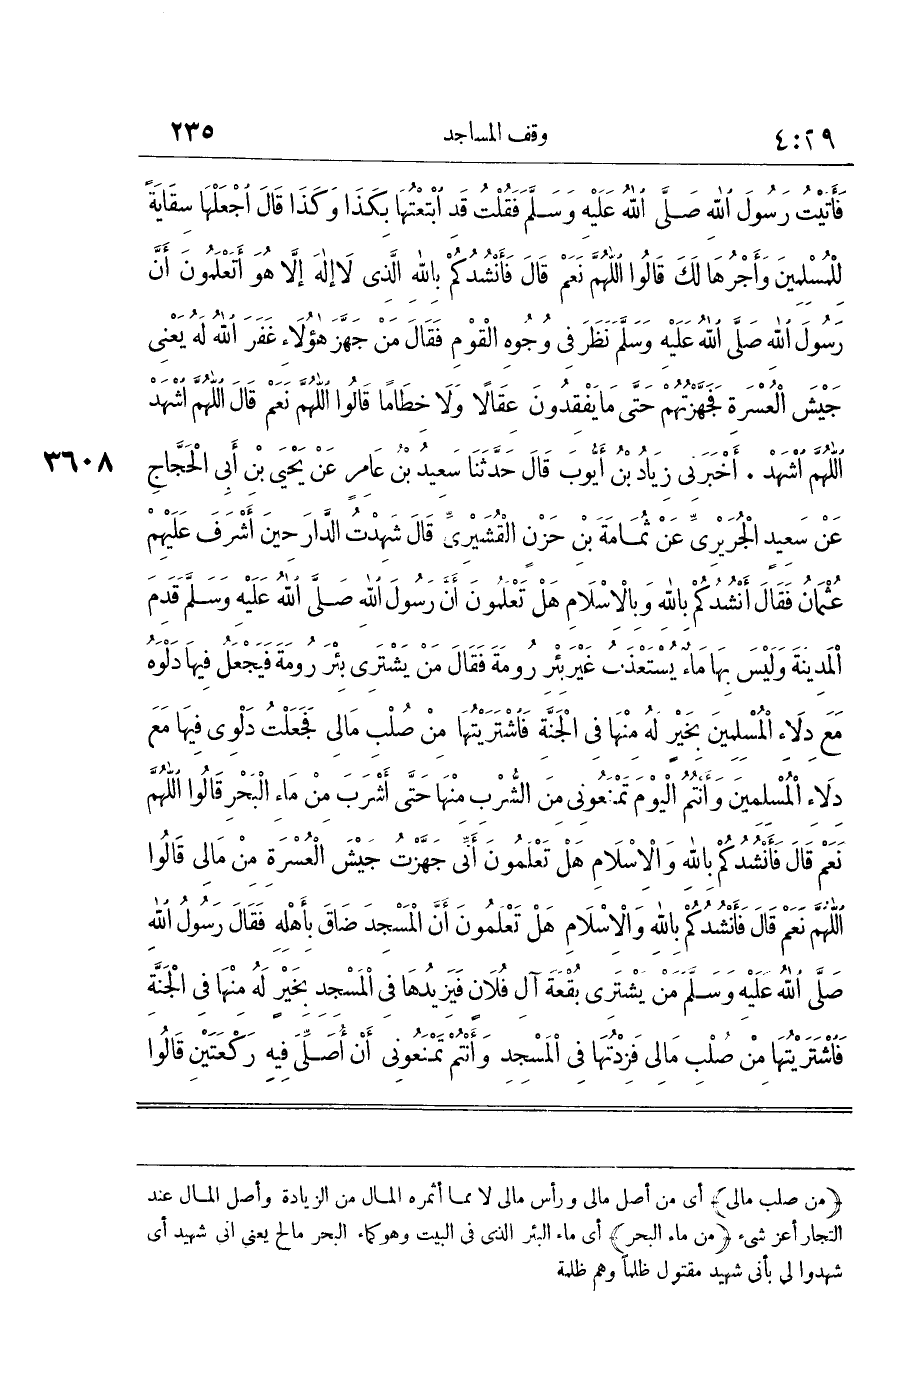 ٤:٢٩ وقف المساجد ٢٣٥
فَأَتَيْتُ رَسُولَ ٱللهِ صَلَّى ٱللهُ عَلَيْهِ وَسَلَّمَ فَقُلْتُ قَدِ ٱبْتَعْتُهَا بِكَذَا وَكَذَا قَالَ ٱجْعَلْهَا سِقَايَةً
لِلْمُسْلِمِينَ وَأَجْرُهَا لَكَ قَالُوا ٱللَّهُمَّ نَعَمْ قَالَ فَأَنْشُدُكُمْ بِاللهِ الَّذِى لَا إِلٰهَ إِلَّا هُوَ أَتَعْلَمُونَ أَنَّ
رَسُولَ ٱللهِ صَلَّى ٱللهُ عَلَيْهِ وَسَلَّمَ نَظَرَ فِى وُجُوهِ الْقَوْمِ فَقَالَ مَنْ جَهَّزَ هٰؤُلَاءِ غَفَرَ ٱللهُ لَهُ يَعْنِى
جَيْشَ الْعُسْرَةِ فَجَهَّزْتُهُمْ حَتَّى مَا يَفْقِدُونَ عِقَالًا وَلَا خِطَامًا قَالُوا ٱللَّهُمَّ نَعَمْ قَالَ ٱللَّهُمَّ ٱشْهَدْ
ٱللَّهُمَّ ٱشْهَدْ . أَخْبَرَنِى زِيَادُ بْنُ أَيُّوبَ قَالَ حَدَّثَنَا سَعِيدُ بْنُ عَامِرٍ عَنْ يَحْيَى بْنِ أَبِى الْحَجَّاجِ ٣٦٠٨
عَنْ سَعِيدٍ الْجُرَيْرِىِّ عَنْ ثُمَامَةَ بْنِ حَزْنٍ الْقُشَيْرِىِّ قَالَ شَهِدْتُ الدَّارَ حِينَ أَشْرَفَ عَلَيْهِمْ
عُثْمَانُ فَقَالَ أَنْشُدُكُمْ بِاللهِ وَبِالْإِسْلَامِ هَلْ تَعْلَمُونَ أَنَّ رَسُولَ ٱللهِ صَلَّى ٱللهُ عَلَيْهِ وَسَلَّمَ قَدِمَ
ٱلْمَدِينَةَ وَلَيْسَ بِهَا مَاءٌ يُسْتَعْذَبُ غَيْرَ بِئْرِ رُومَةَ فَقَالَ مَنْ يَشْتَرِى بِئْرَ رُومَةَ فَيَجْعَلُ فِيهَا دَلْوَهُ
مَعَ دِلَاءِ ٱلْمُسْلِمِينَ بِخَيْرٍ لَهُ مِنْهَا فِى الْجَنَّةِ فَٱشْتَرَيْتُهَا مِنْ صُلْبِ مَالِى فَجَعَلْتُ دَلْوِى فِيهَا مَعَ
دِلَاءِ ٱلْمُسْلِمِينَ وَأَنْتُمُ الْيَوْمَ تَمْنَعُونِى مِنَ الشُّرْبِ مِنْهَا حَتَّى أَشْرَبَ مِنْ مَاءِ الْبَحْرِ قَالُوا ٱللَّهُمَّ
نَعَمْ قَالَ فَأَنْشُدُكُمْ بِاللهِ وَالْإِسْلَامِ هَلْ تَعْلَمُونَ أَنِّى جَهَّزْتُ جَيْشَ الْعُسْرَةِ مِنْ مَالِى قَالُوا
ٱللَّهُمَّ نَعَمْ قَالَ فَأَنْشُدُكُمْ بِاللهِ وَالْإِسْلَامِ هَلْ تَعْلَمُونَ أَنَّ ٱلْمَسْجِدَ ضَاقَ بِأَهْلِهِ فَقَالَ رَسُولُ ٱللهِ
صَلَّى ٱللهُ عَلَيْهِ وَسَلَّمَ مَنْ يَشْتَرِى بُقْعَةَ آلِ فُلَانٍ فَيَزِيدُهَا فِى ٱلْمَسْجِدِ بِخَيْرٍ لَهُ مِنْهَا فِى الْجَنَّةِ
فَٱشْتَرَيْتُهَا مِنْ صُلْبِ مَالِى فَزِدْتُهَا فِى ٱلْمَسْجِدِ وَأَنْتُمْ تَمْنَعُونِى أَنْ أُصَلِّىَ فِيهِ رَكْعَتَيْنِ قَالُوا
﴿من صلب مالى﴾ أى من أصل مالى ورأس مالى لا مما أثمره المال من الزيادة وأصل المال عند
التجار أعز شىء ﴿من ماء البحر﴾ أى ماء البئر الذى فى البيت وهو كماء البحر مالح يعنى انى شهيد أى
شهدوا لي بأنى شهيد مقتول ظلماً وهم ظلمة